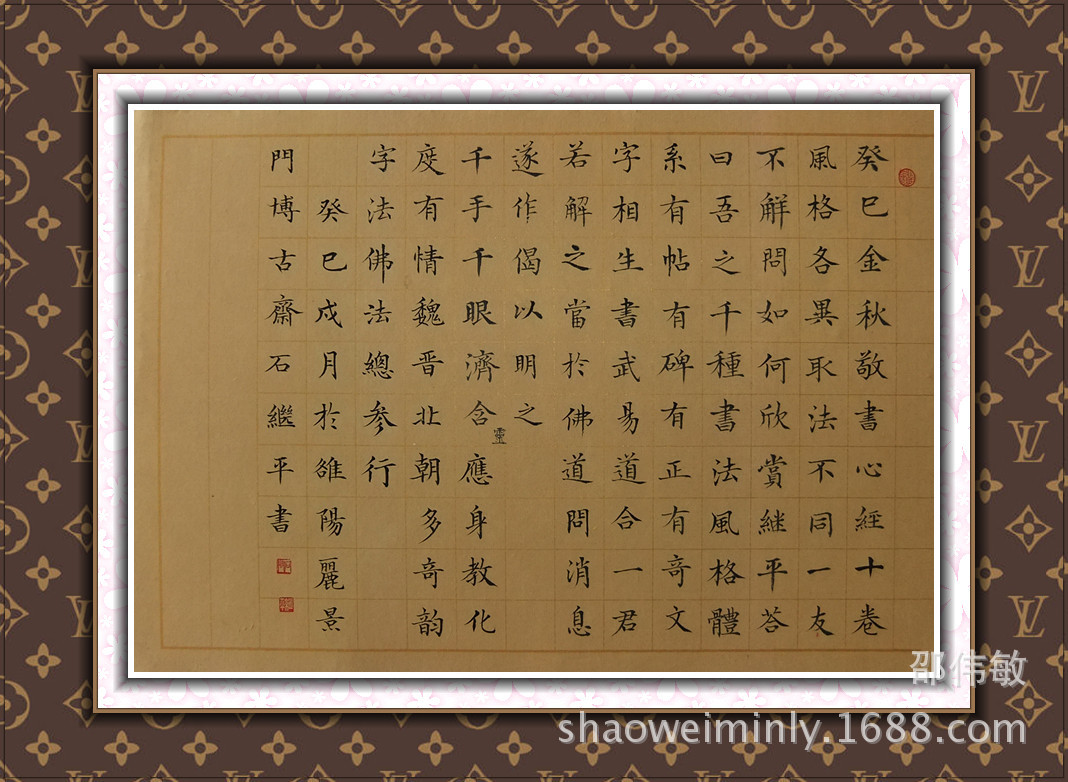 癸巳金秋敬書心経十卷
風格各異取法不同一友
不觧問如何欣賞継平荅
曰吾之千種書法風格體
系有帖有碑有正有奇文
字相生書武易道合一君
若解之當於佛道問消息
遂作偈以明之
千手千眼濟含靈應身教化
度有情魏晋北朝多奇韵
字法佛法總参行
癸巳戌月於雒陽麗景
門博古齋石繼平書
邵伟敏
shaoweiminly.1688.com